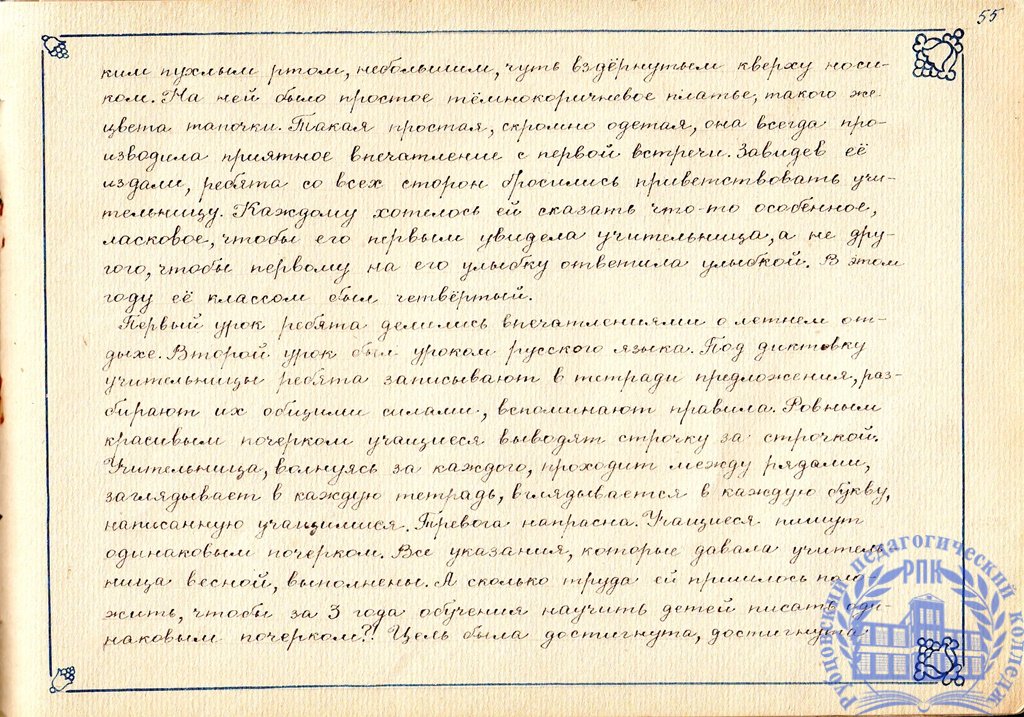 55
ким пухлым ртом, небольшим, чуть вздёрнутым кверху носи-
ком. На ней было простое тёмнокоричневое платье, такого же
цвета тапочки. Такая простая, скромно одетая, она всегда про-
изводила приятное впечатление с первой встречи. Завидев её
издали, ребята со всех сторон бросились приветствовать учи-
тельницу. Каждому хотелось ей сказать что-то особенное,
ласковое, чтобы его первым увидела учительница, а не дру-
гого, чтобы первому на его улыбку ответила улыбкой. В этом
году её классом был четвёртый.
Первый урок ребята делились впечатлениями о летнем от-
дыхе. Второй урок был уроком русского языка. Под диктовку
учительницы ребята записывают в тетради предложения, раз-
бирают их общими силами, вспоминают правила. Ровным
красивым почерком учащиеся выводят строчку за строчкой.
Учительница, волнуясь за каждого, проходит между рядами,
заглядывает в каждую тетрадь, вглядывается в каждую букву,
написанную учащимися. Тревога напрасна. Учащиеся пишут
одинаковым почерком. Все указания, которые давала учитель-
ница весной, выполнены. А сколько труда ей пришлось поло-
жить, чтобы за 3 года обучения научить детей писать оди-
наковым почерком?! Цель была достигнута, достигнута
педагогический колледж
РПК